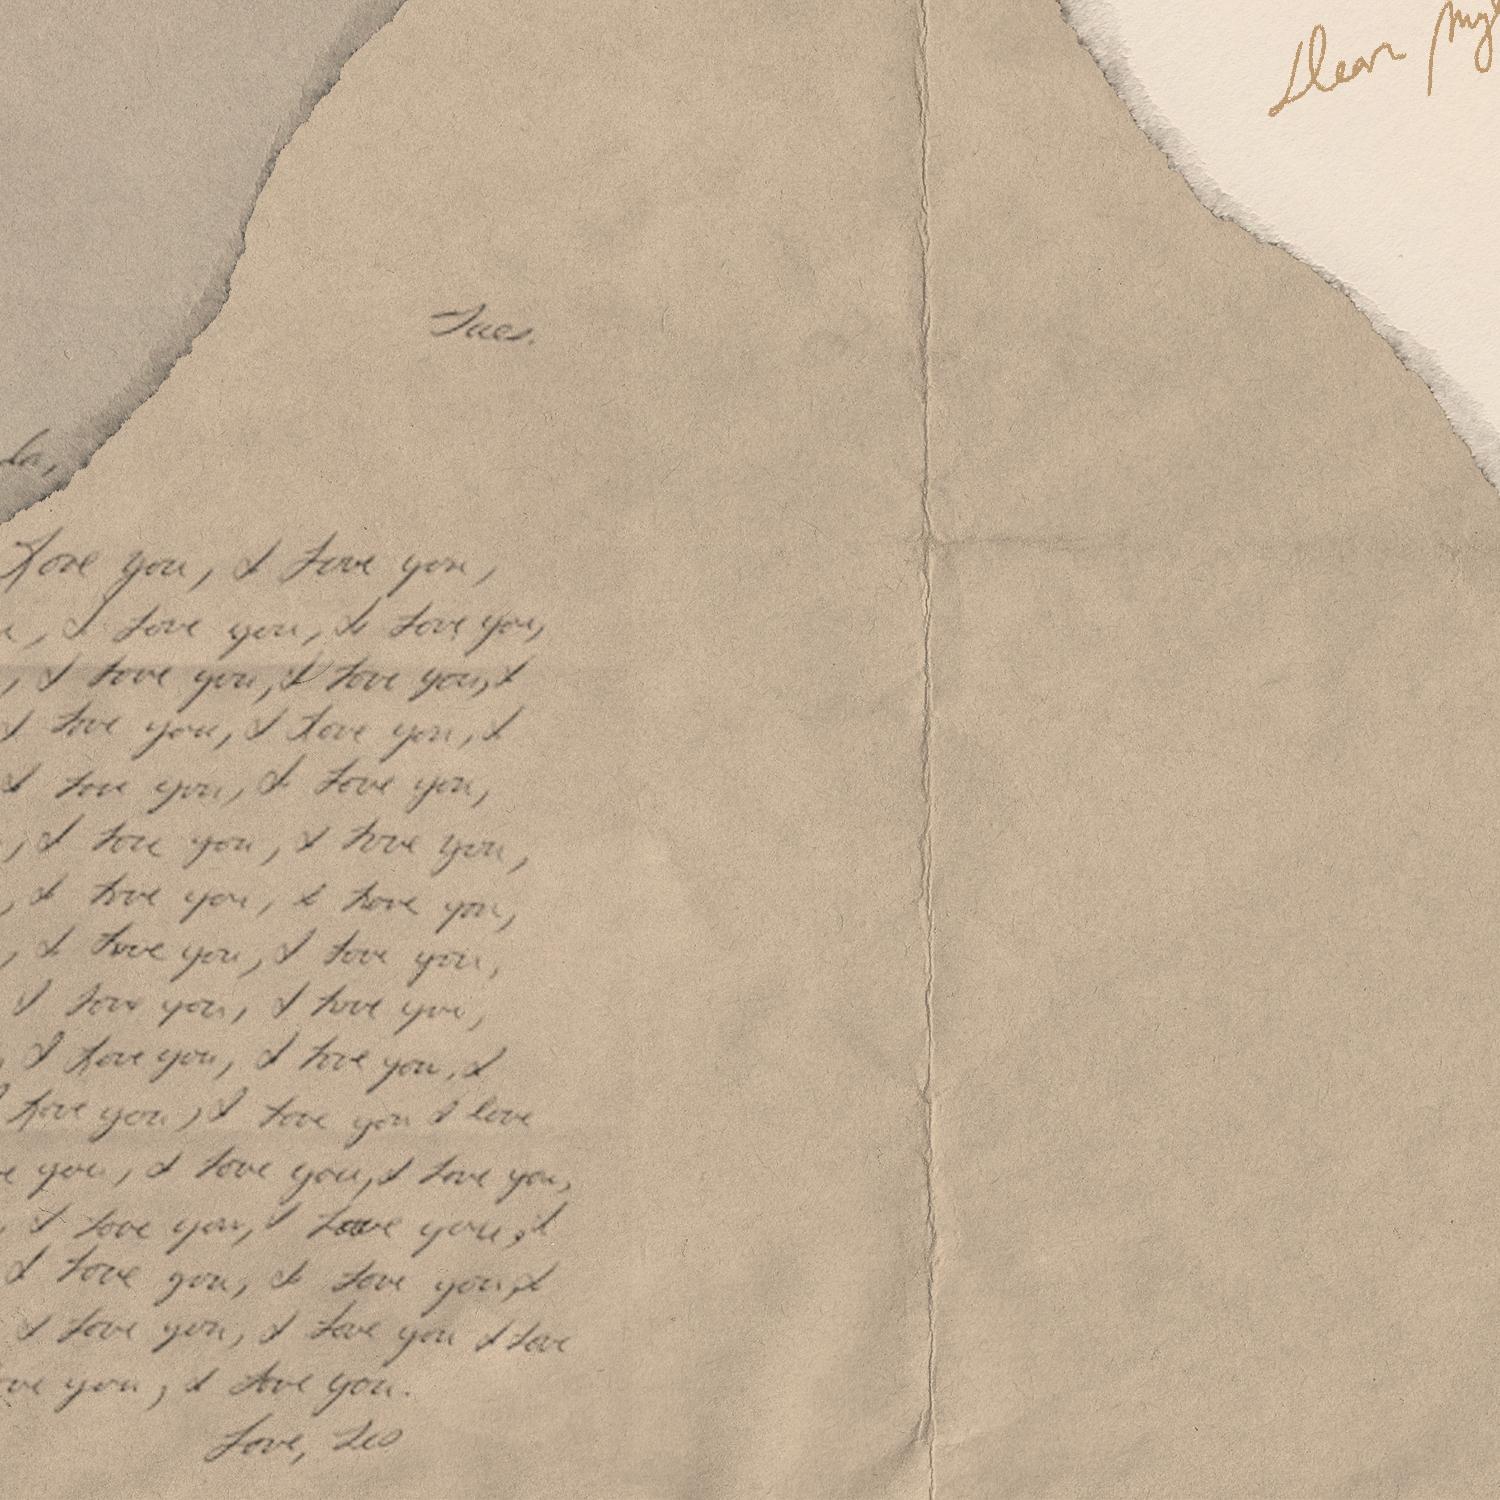 Dear My
Tues.
da,
Love you, I love you,
u, I love you, I love you,
, I love you, I love you, I
I love you, I love you, I
I love you, I love you,
, I love you, I love you,
, I love you, I love you,
, I love you, I love you,
I love you, I love you,
, I love you, I love you, I
love you, I love you I love
e you, I love you, I love you,
, I love you, I love you, I
I love you, I love you, I
I love you, I love you I love
ove you, I love you.
Love, Leo